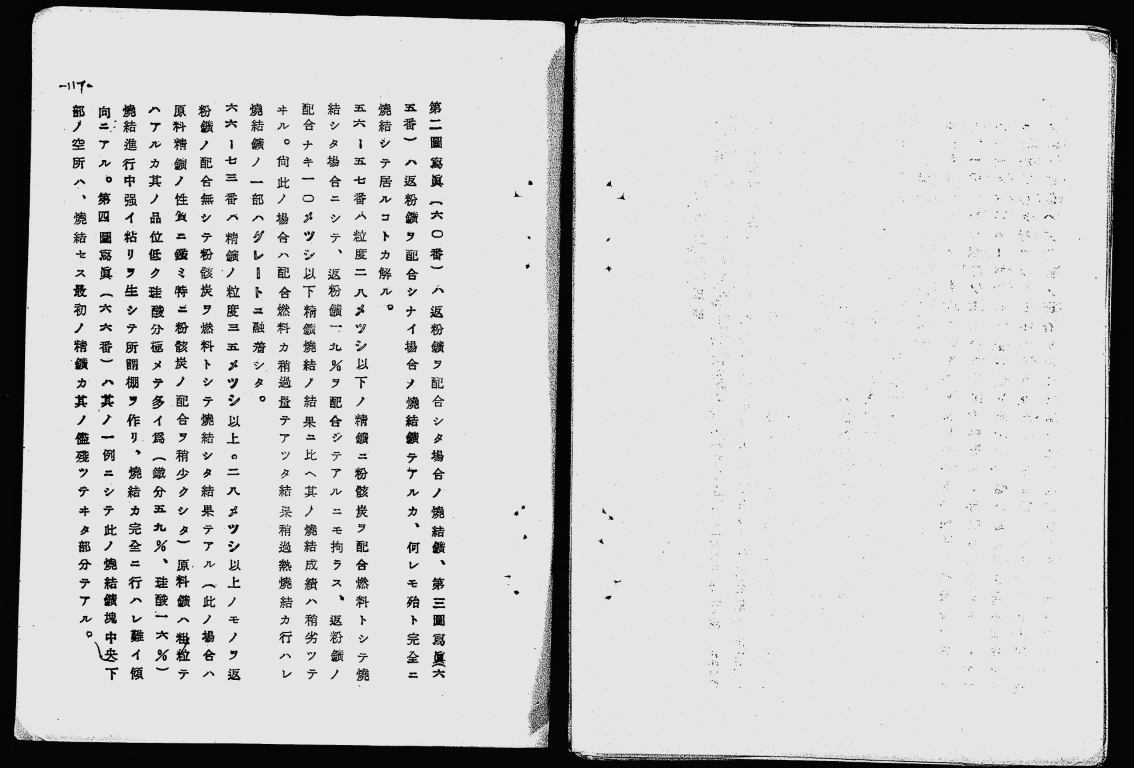 第二圖寫眞(六〇番)ハ返粉鑛ヲ配合シタ場合ノ燒結鑛、第三圖寫眞(六
五番)ハ返粉鑛ヲ配合シナイ場合ノ燒結鑛テアルカ、何レモ殆ト完全ニ
燒結シテ居ルコトカ解ル。
五六ー五七番ハ粒度二八メツシ以下ノ精鑛ニ粉骸炭ヲ配合燃料トシテ燒
結シタ場合ニシテ、返粉鑛一九%ヲ配合シテアルニモ拘ラス、返粉鑛ノ
配合ナキ一〇メツシ以下精鑛燒結ノ結果ニ比ヘ其ノ燒結成績ハ稍劣ツテ
ヰル。尙此ノ場合ハ配合燃料カ稍過量テアツタ結果稍過熱燒結カ行ハレ
燒結鑛ノ一部ハグレートニ融着シタ。
六六ー七三番ハ精鑛ノ粒度三五メツシ以上。二八メツシ以上ノモノヲ返
粉鑛ノ配合無シテ粉骸炭ヲ燃料トシテ燒結シタ結果テアル(此ノ場合ハ
原料精鑛ノ性質ニ鑑ミ特ニ粉骸炭ノ配合ヲ稍少クシタ)原料鑛ハ粗粒テ
ハアルカ其ノ品位低ク珪酸分極メテ多イ爲(鐵分五九%、珪酸一六%)
燒結進行中强イ粘リヲ生シテ所謂棚ヲ作リ、燒結カ完全ニ行ハレ難イ傾
向ニアル。第四圖寫眞(六六番)ハ其ノ一例ニシテ此ノ燒結鑛塊中央下
部ノ空所ハ、燒結セス最初ノ精鑛カ其ノ儘殘ツテヰタ部分テアル。
-117-